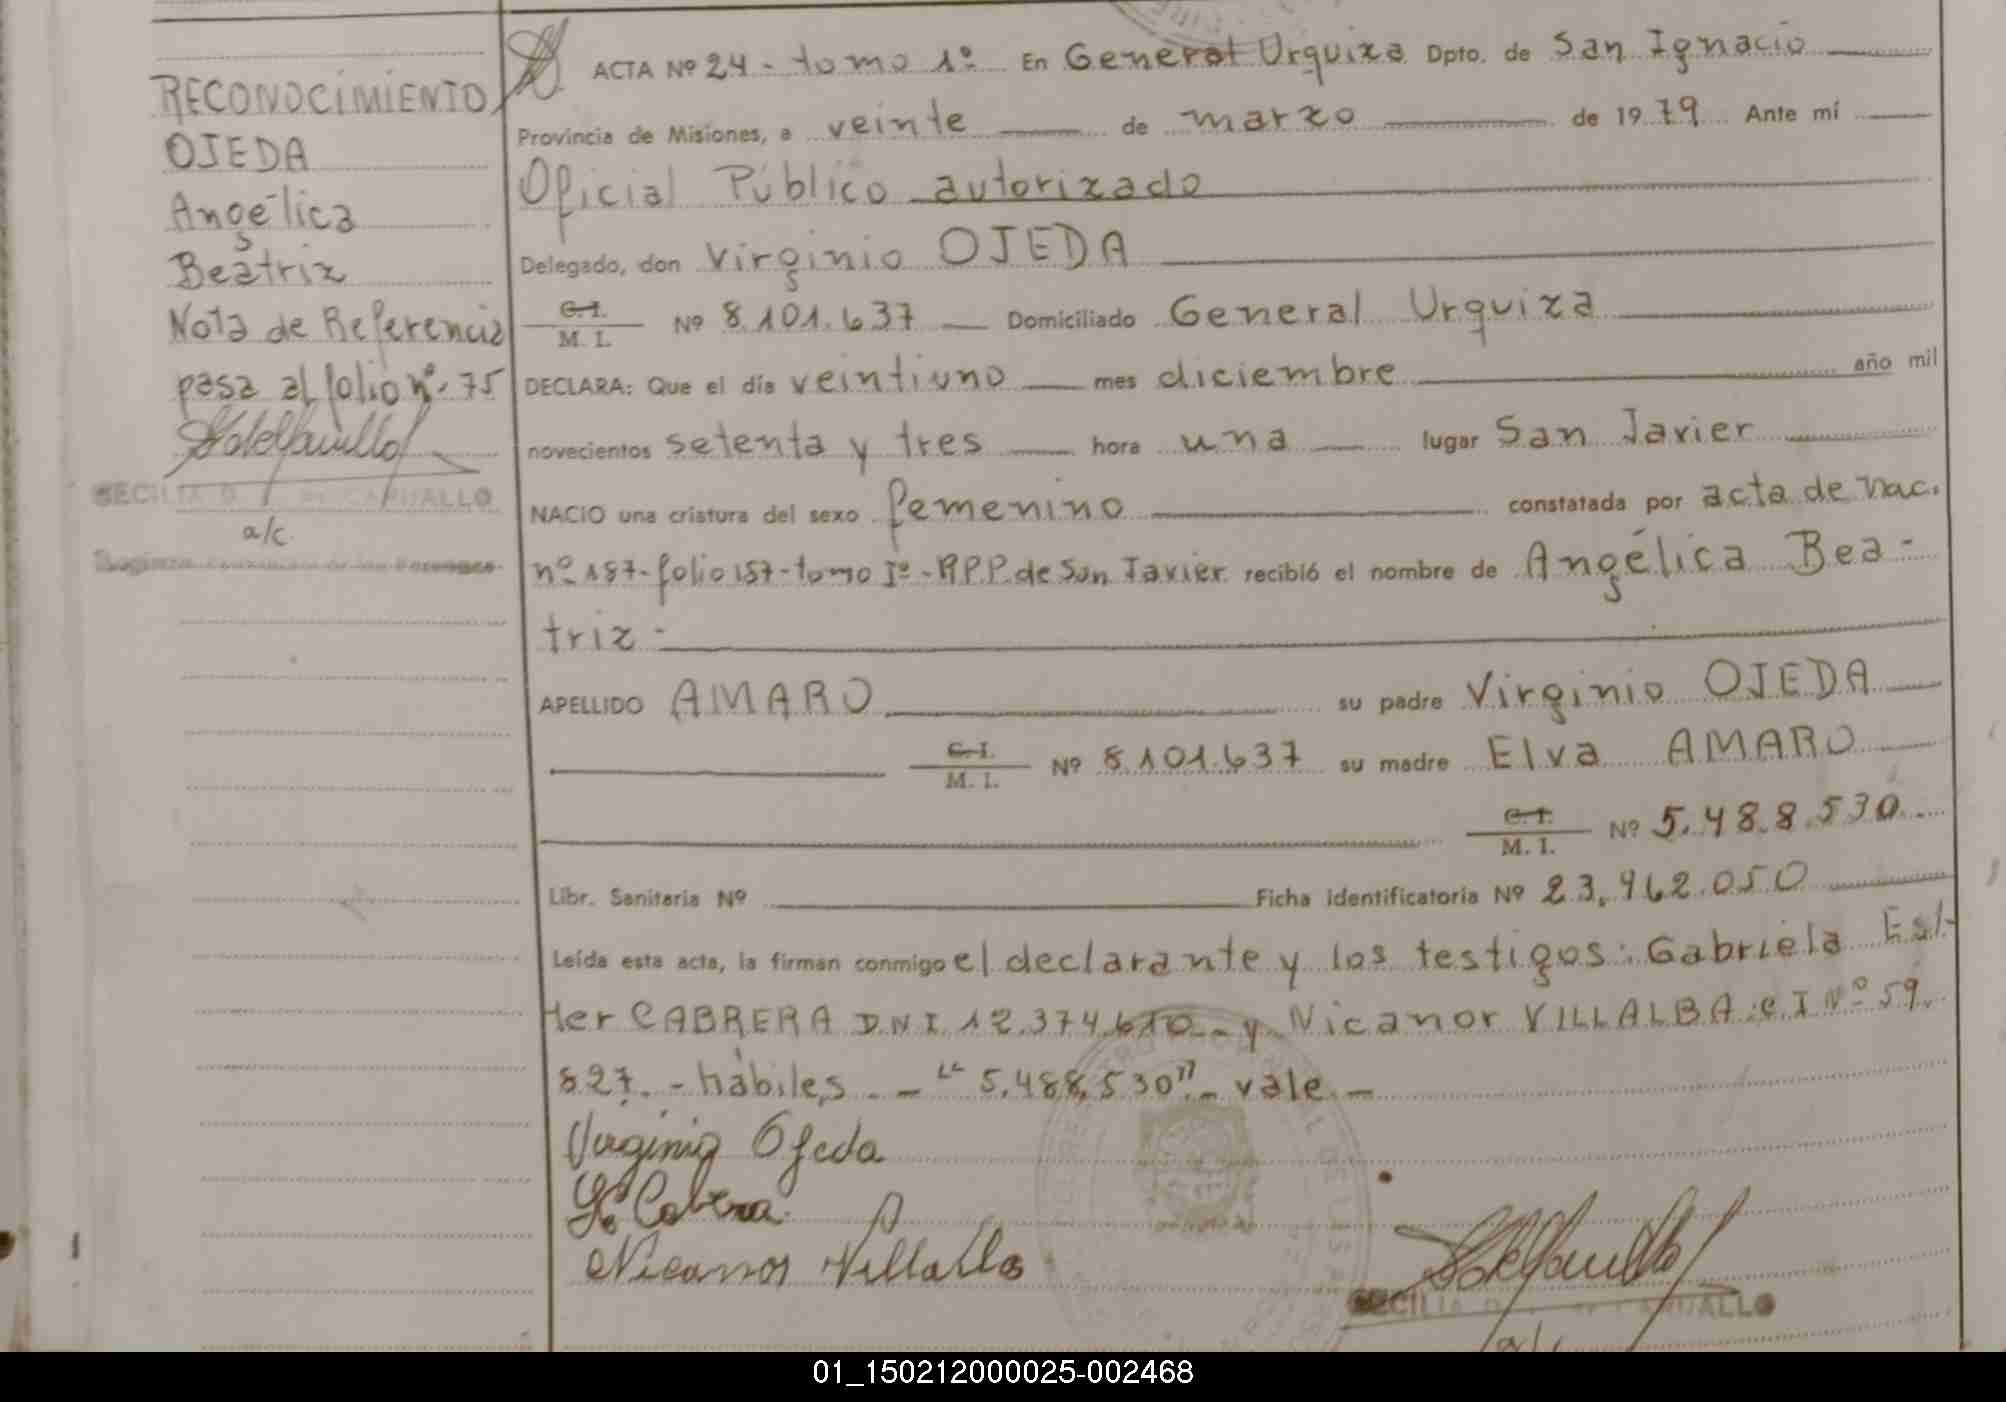 RECONOCIMIENTO
OJEDA
Angélica
Beatriz
Nota de Referencia
pasa al folio nº 75
CECILIA D. CARUALLO
a/c.
ACTA Nº 24 - tomo 1º En General Urquiza Dpto. de San Ignacio
Provincia de Misiones, a veinte de marzo de 1979 Ante mí
Oficial Público autorizado
Delegado, don Virginio OJEDA
C.I.
M. I. Nº 8.101.637 Domiciliado General Urquiza
DECLARA: Que el día veintiuno mes diciembre año mil
novecientos setenta y tres hora una lugar San Javier
NACIO una criatura del sexo femenino constatada por acta de nac.
nº 157-folio 157-tomo Iº-R.P.P. de San Javier recibió el nombre de Angélica Bea-
triz -
APELLIDO AMARO su padre Virginio OJEDA
C.I.
M. I. Nº 8.101.637 su madre Elva AMARO
C.I.
M. I. Nº 5.488.530
Libr. Sanitaria Nº Ficha Identificatoria Nº 23.962.050
Leída esta acta, la firman conmigo el declarante y los testigos: Gabriela Est-
her CABRERA D.N.I. 12.374.610 - y Nicanor VILLALBA C.I. Nº 59.
827. - hábiles. - "5.488.530" - vale. -
Virginio Ojeda
Cabrera
Nicanor Villalba
CECILIA D. CARUALLO
a/c
01_150212000025-002468